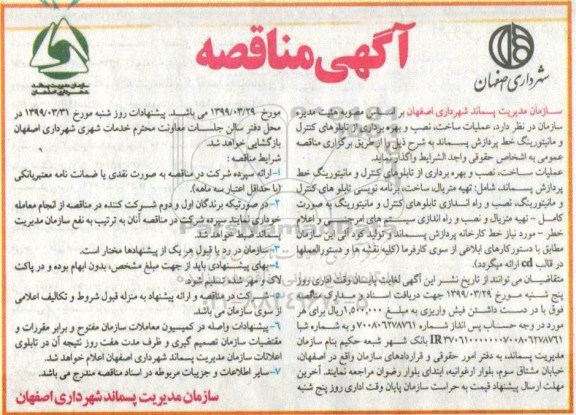 آگهی مناقصه
شهرداری اصفهان
سازمان مدیریت پسماند
شهرداری اصفهان
سازمان مدیریت پسماند شهرداری اصفهان بر اساس مصوبه هیئت مدیره
سازمان در نظر دارد، عملیات ساخت، نصب و بهره برداری از تابلوهای کنترل
و مانیتورینگ خط پردازش پسماند به شرح ذیل را از طریق برگزاری مناقصه
عمومی به اشخاص حقوقی واجد الشرایط واگذار نماید.
عملیات ساخت، نصب و بهره برداری از تابلوهای کنترل و مانیتورینگ خط
پردازش پسماند، شامل: تهیه متریال، ساخت، برنامه نویسی تابلو های کنترل
و مانیتورینگ، نصب و راه اندازی تابلوهای کنترل و مانیتورینگ به صورت
کامل - تهیه متریال و نصب و راه اندازی سیستم های امرجنسی و اعلام
خطر - مورد نیاز خط کارخانه پردازش پسماند و تولید کود آلی این سازمان
مطابق با دستورکارهای ابلاغی از سوی کارفرما (کلیه نقشه ها و دستورالعملها
در قالب cd ارائه میگردد).
متقاضیان می توانند از تاریخ نشر این آگهی لغایت پایان وقت اداری روز
پنج شنبه مورخ ۱۳۹۹/۰۳/۲۹ جهت دریافت اسناد و مدارک مناقصه
فوق با در دست داشتن فیش واریزی به مبلغ ۱,۵۰۰,۰۰۰ ریال برای هر
مورد در وجه حساب پس انداز شماره ۷۰۰۸۰۶۲۷۸۷۶۱ و به شماره شبا
IR۳۷۰۶۱۰۰۰۰۰۰۰۷۰۰۸۰۶۲۷۸۷۶۱ بانک شهر شعبه حکیم بنام سازمان
مدیریت پسماند، به دفتر امور حقوقی و قراردادهای سازمان واقع در اصفهان،
خیابان مشتاق سوم، بلوار ارغوانیه، ابتدای بلوار رضوان مراجعه نمایند. آخرین
مهلت ارسال پیشنهاد قیمت به حراست سازمان پایان وقت اداری روز پنج شنبه
مورخ ۱۳۹۹/۰۳/۲۹ می باشد. پیشنهادات روز شنبه مورخ ۱۳۹۹/۰۳/۳۱ در
محل دفتر سالن جلسات معاونت محترم خدمات شهری شهرداری اصفهان
بازگشایی خواهد شد.
شرایط مناقصه:
۱- ارائه سپرده شرکت در مناقصه به صورت نقدی یا ضمانت نامه معتبربانکی
(با حداقل اعتبار سه ماهه).
۲- در صورتیکه برندگان اول و دوم شرکت کننده در مناقصه از انجام معامله
خودداری نمایند سپرده شرکت در مناقصه آنان به ترتیب به نفع سازمان مدیریت
پسماند ضبط خواهد شد.
۳- سازمان در رد یا قبول هر یک از پیشنهادها مختار است.
۴- بهای پیشنهادی باید از جهت مبلغ مشخص، بدون ابهام بوده و در پاکت
لاک و مهر شده تسلیم شود.
۵- شرکت در مناقصه و ارائه پیشنهاد به منزله قبول شروط و تکالیف اعلامی
از سوی سازمان می باشد.
۶- پیشنهادات واصله در کمیسیون معاملات سازمان مفتوح و برابر مقررات و
مقتضیات سازمان تصمیم گیری و ظرف مدت هفت روز نتیجه آن در تابلوی
اعلانات سازمان مدیریت پسماند شهرداری اصفهان اعلام خواهد شد.
۷- سایر اطلاعات و جزییات مربوطه در اسناد مناقصه مندرج می باشد.
سازمان مدیریت پسماند شهرداری اصفهان